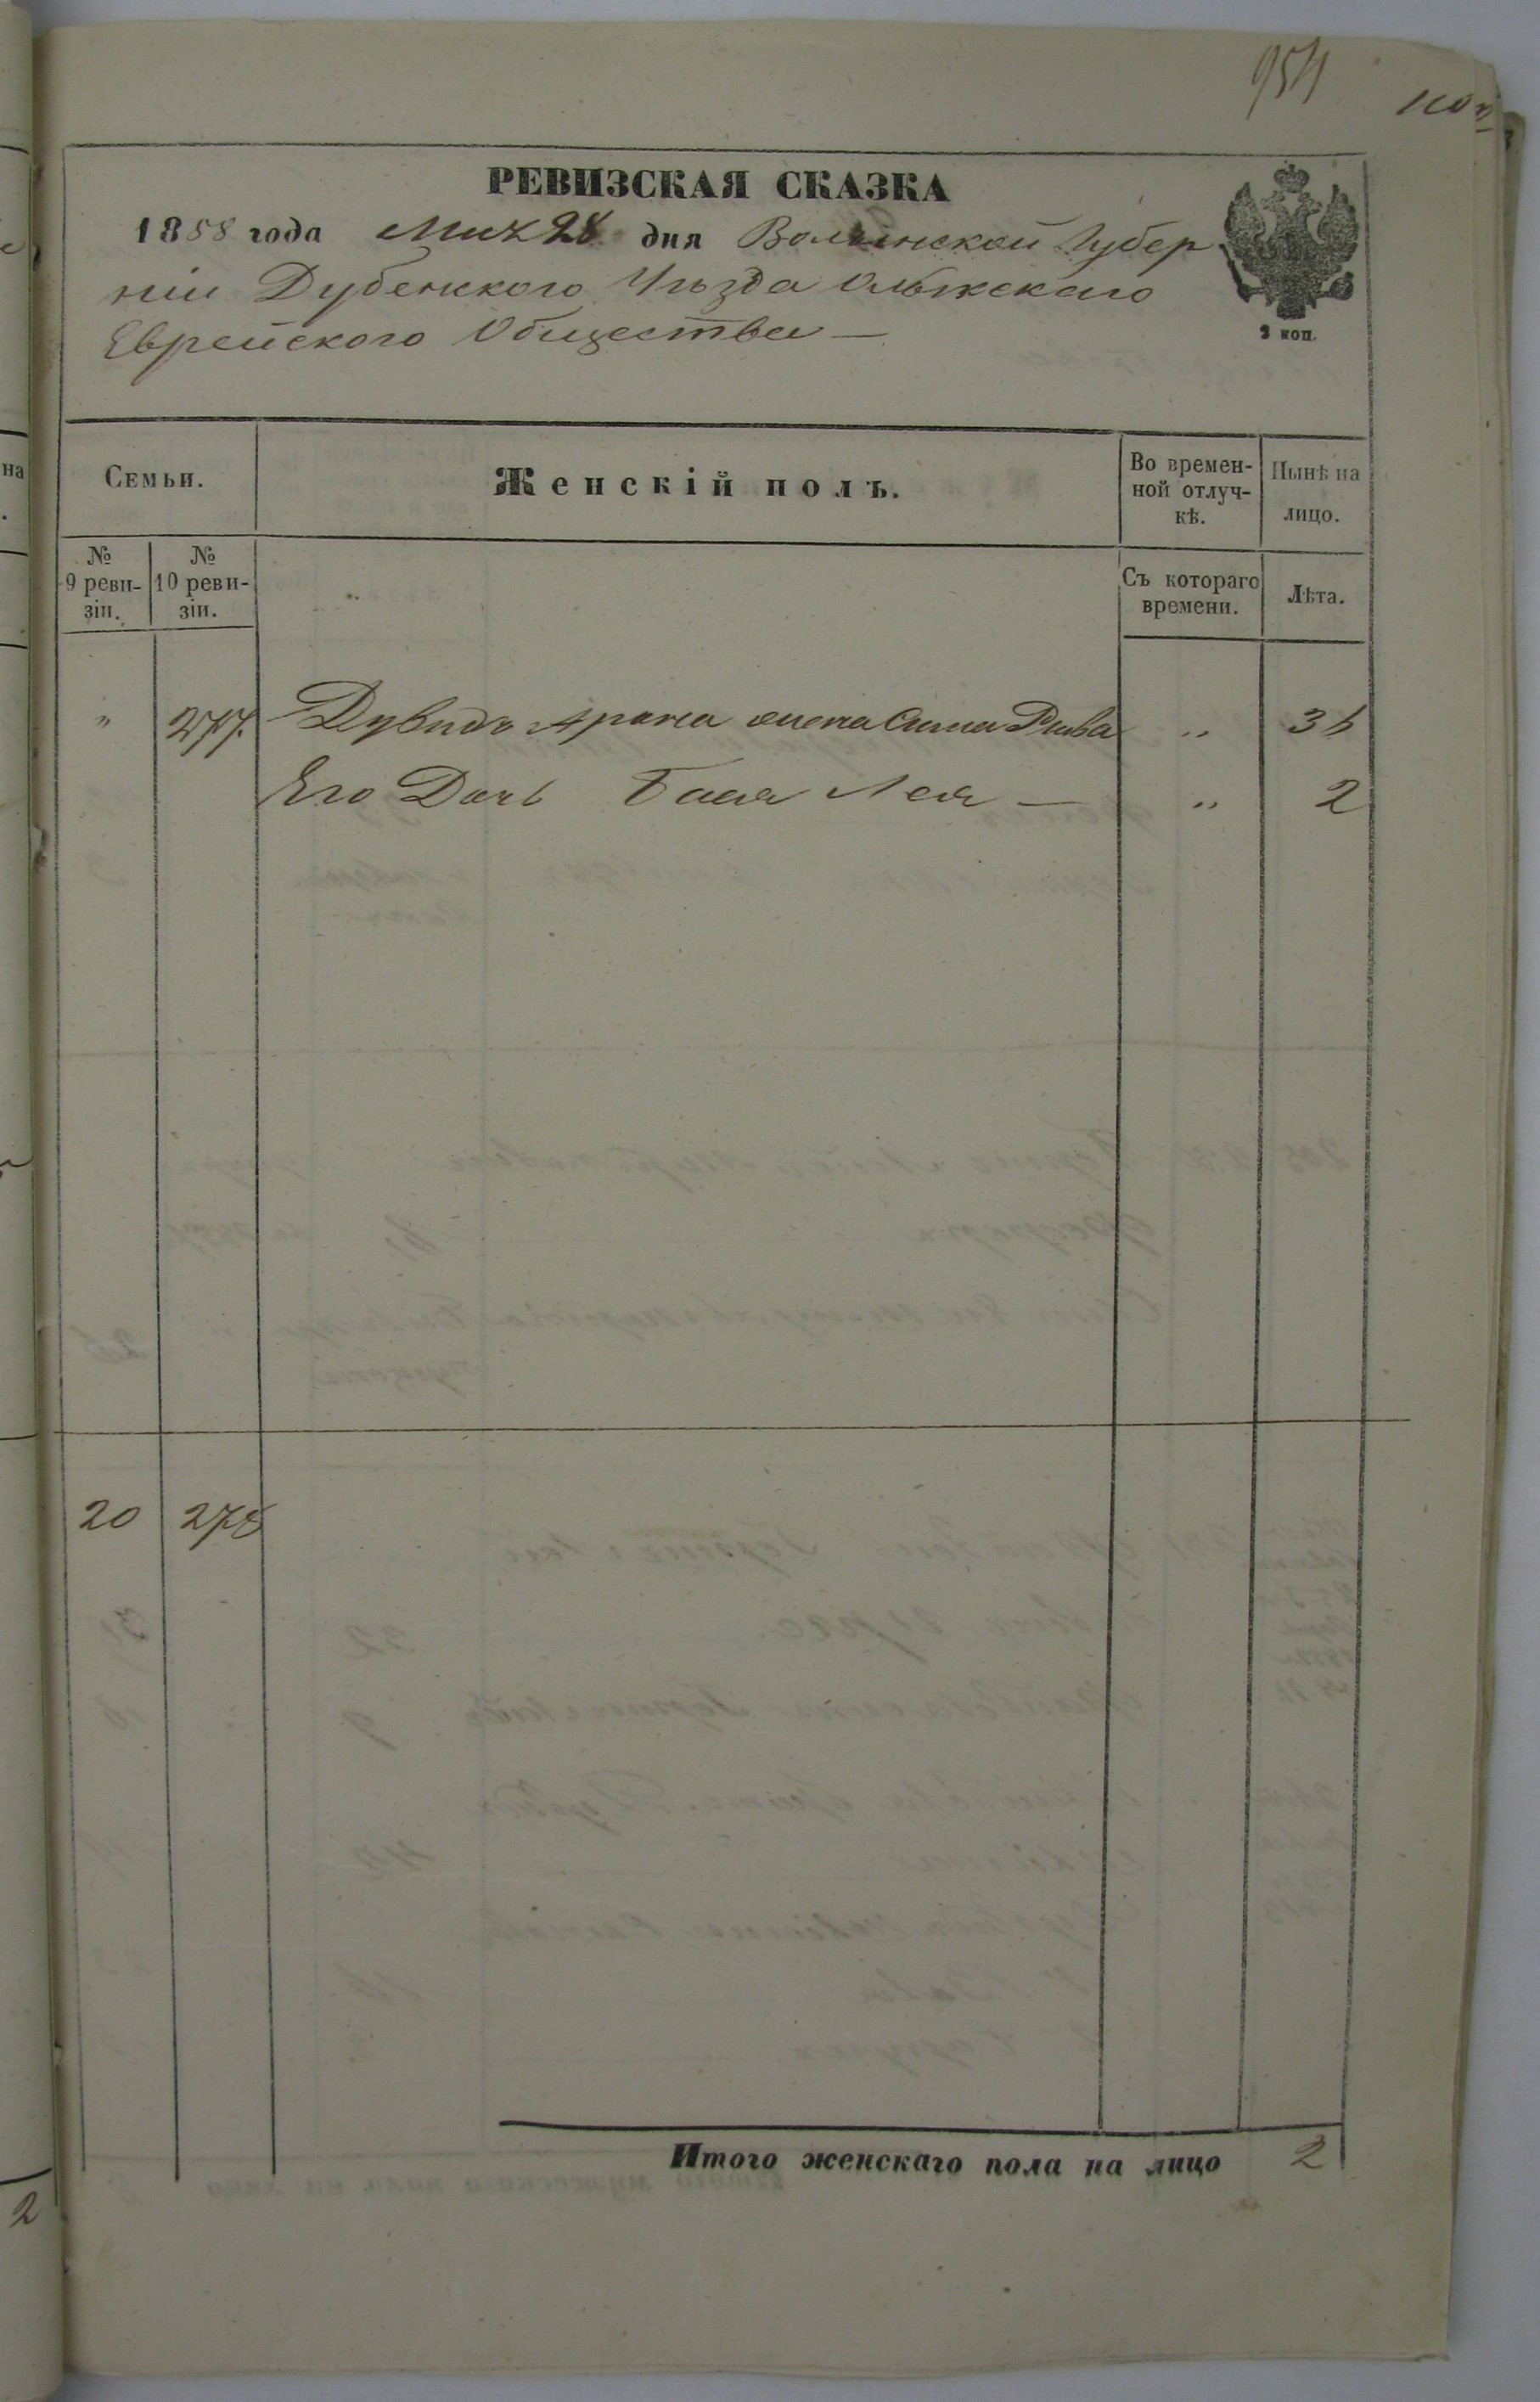 954
РЕВИЗСКАЯ СКАЗКА
1858 года Мая 28 дня Волынской Губер
ніи Дубенского Уѣзда Олыкскаго
Еврейского Общества —
2 коп.
Семьи. Женскій полъ. Во времен- Нынѣ на
на
ной отлуч-
кѣ. лицо.
№ №
9 реви- 10 реви- Съ котораго Лѣта.
зіи. зіи. времени.
" 277. Дувидъ Арона жена Сима Рива " 36
Его Дочь Бася Лея — " 2
20 278
Итого женскаго пола на лицо 2
2